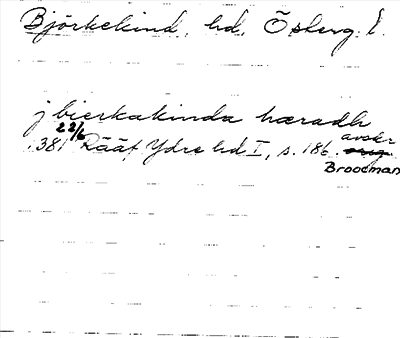 Björkekind, hd, Östberg l.
j bierkakinda hæradh
22/6
1381 Rääf Ydre hd I, s. 186. avskr
Broocman